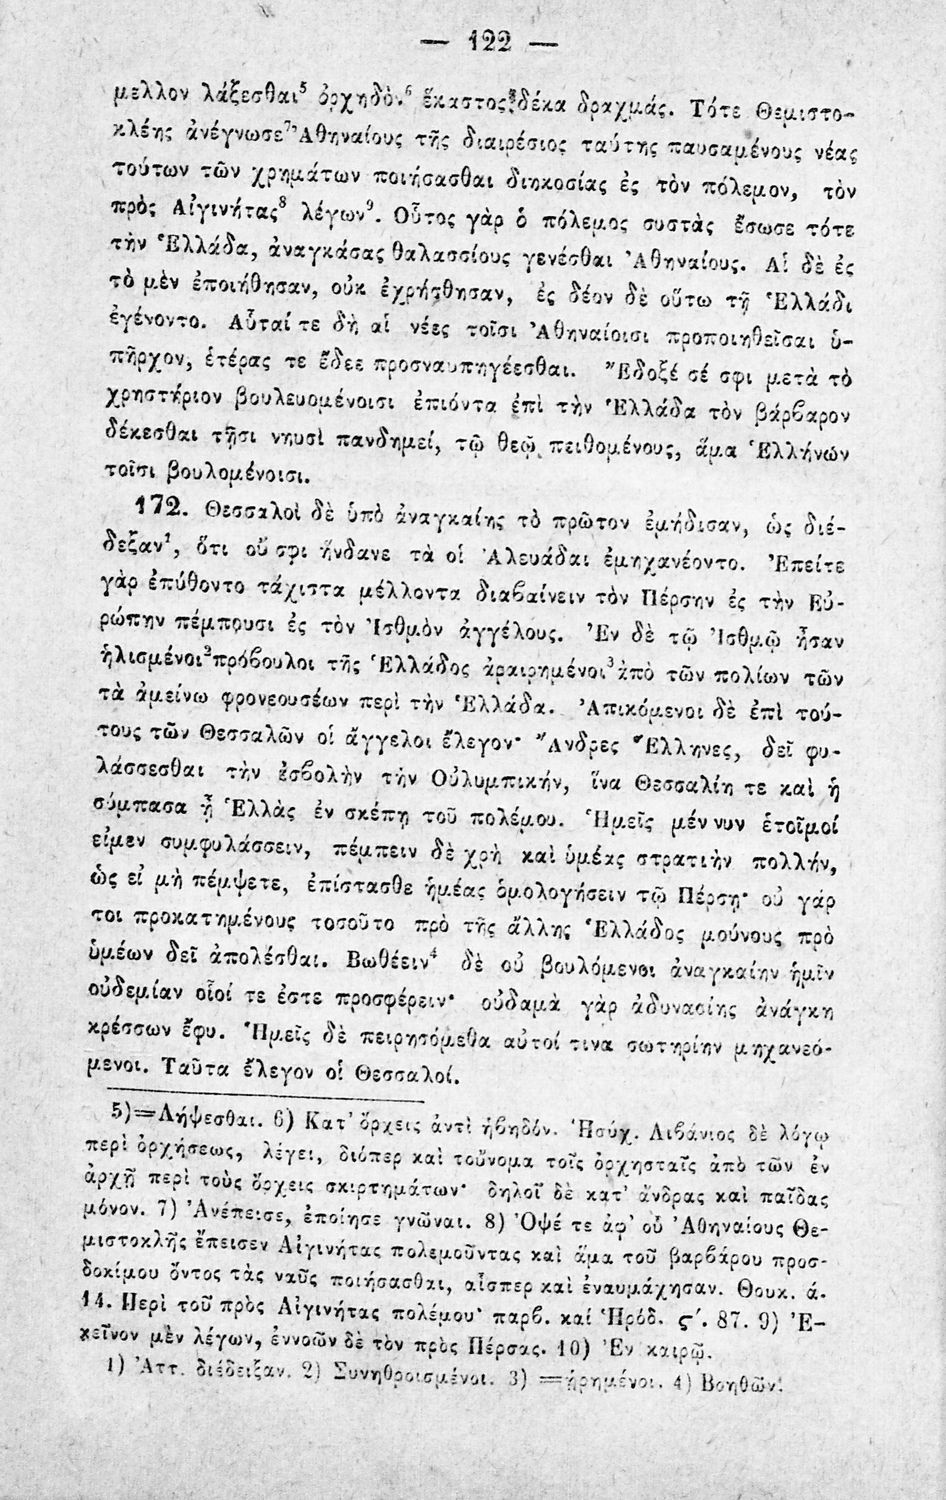 — 122 —
μελλον λάξεσθαι⁵ ὀρχηδὸν⁶ ἕκαστος δέκα δραχμάς. Τότε Θεμιστο-
κλέης ἀνέγνωσε⁷ Ἀθηναίους τῆς διαιρέσιος ταύτης παυσαμένους νέας
τούτων τῶν χρημάτων ποιήσασθαι διηκοσίας ἐς τὸν πόλεμον, τὸν
πρὸς Αἰγινήτας⁸ λέγων⁹. Οὗτος γὰρ ὁ πόλεμος συστὰς ἔσωσε τότε
τὴν Ἑλλάδα, ἀναγκάσας θαλασσίους γενέσθαι Ἀθηναίους. Αἱ δὲ ἐς
τὸ μὲν ἐποιήθησαν, οὐκ ἐχρήσθησαν, ἐς δέον δὲ οὕτω τῇ Ἑλλάδι
ἐγένοντο. Αὗταί τε δὴ αἱ νέες τοῖσι Ἀθηναίοισι προποιηθεῖσαι ὑ-
πῆρχον, ἑτέρας τε ἔδεε προσναυπηγέεσθαι. Ἔδοξέ σέ σφι μετὰ τὸ
χρηστήριον βουλευομένοισι ἐπιόντα ἐπὶ τὴν Ἑλλάδα τὸν βάρβαρον
δέκεσθαι τῇσι νηυσὶ πανδημεί, τῷ θεῷ πειθομένους, ἅμα Ἑλλήνων
τοῖσι βουλομένοισι.
172. Θεσσαλοὶ δὲ ὑπὸ ἀναγκαίης τὸ πρῶτον ἐμήδισαν, ὡς διέ-
δεξαν¹, ὅτι οὔ σφι ἥνδανε τὰ οἱ Ἀλευάδαι ἐμηχανέοντο. Ἐπείτε
γὰρ ἐπύθοντο τάχιστα μέλλοντα διαβαίνειν τὸν Πέρσην ἐς τὴν Εὐ-
ρώπην πέμπουσι ἐς τὸν Ἰσθμὸν ἀγγέλους. Ἐν δὲ τῷ Ἰσθμῷ ἦσαν
ἡλισμένοι² πρόβουλοι τῆς Ἑλλάδος ἀραιρημένοι³ ἀπὸ τῶν πολίων τῶν
τὰ ἀμείνω φρονεουσέων περὶ τὴν Ἑλλάδα. Ἀπικόμενοι δὲ ἐπὶ τού-
τους τῶν Θεσσαλῶν οἱ ἄγγελοι ἔλεγον· Ἄνδρες Ἕλληνες, δεῖ φυ-
λάσσεσθαι τὴν ἐσβολὴν τὴν Οὐλυμπικήν, ἵνα Θεσσαλίη τε καὶ ἡ
σύμπασα ᾖ Ἑλλὰς ἐν σκέπῃ τοῦ πολέμου. Ἡμεῖς μέν νυν ἑτοῖμοί
εἰμεν συμφυλάσσειν, πέμπειν δὲ χρὴ καὶ ὑμέας στρατιὴν πολλήν,
ὡς εἰ μὴ πέμψετε, ἐπίστασθε ἡμέας ὁμολογήσειν τῷ Πέρσῃ· οὐ γάρ
τοι προκατημένους τοσοῦτο πρὸ τῆς ἄλλης Ἑλλάδος μούνους πρὸ
ὑμέων δεῖ ἀπολέσθαι. Βωθέειν⁴ δὲ οὐ βουλόμενοι ἀναγκαίην ἡμῖν
οὐδεμίαν οἷοί τε ἐστε προσφέρειν· οὐδαμὰ γὰρ ἀδυνασίης ἀνάγκη
κρέσσων ἔφυ. Ἡμεῖς δὲ πειρησόμεθα αὐτοί τινα σωτηρίην μηχανεό-
μενοι. Ταῦτα ἔλεγον οἱ Θεσσαλοί.
5)=Λήψεσθαι. 6) Κατ' ὄρχεις ἀντὶ ἡβηδόν. Ἡσύχ. Λιβάνιος δὲ λόγῳ
περὶ ὀρχήσεως, λέγει, διόπερ καὶ τοὔνομα τοῖς ὀρχησταῖς ἀπὸ τῶν ἐν
ἀρχῇ περὶ τοὺς ὄρχεις σκιρτημάτων· δηλοῖ δὲ κατ' ἄνδρας καὶ παῖδας
μόνον. 7) Ἀνέπεισε, ἐποίησε γνῶναι. 8) Ὀψέ τε ἀφ' οὗ Ἀθηναίους Θε-
μιστοκλῆς ἔπεισεν Αἰγινήτας πολεμοῦντας καὶ ἅμα τοῦ βαρβάρου προσ-
δοκίμου ὄντος τὰς ναῦς ποιήσασθαι, αἷσπερ καὶ ἐναυμάχησαν. Θουκ. ά.
14. Περὶ τοῦ πρὸς Αἰγινήτας πολέμου· παρβ. καί Ἡρόδ. ς'. 87. 9) Ἐ-
κεῖνον μὲν λέγων, ἐννοῶν δὲ τὸν πρὸς Πέρσας. 10) Ἐν καιρῷ.
1) Ἀττ. διέδειξαν. 2) Συνηθροισμένοι. 3) =ᾑρημένοι. 4) Βοηθῶν.